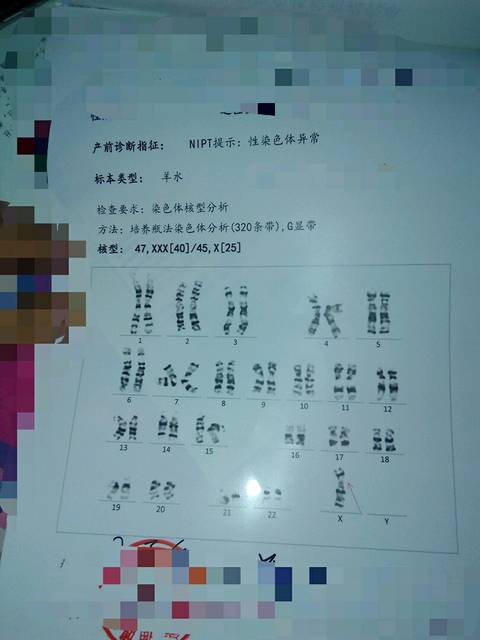 产前诊断指征： NIPT提示：性染色体异常
标本类型： 羊水
检查要求：染色体核型分析
方法：培养瓶法染色体分析(320条带),G显带
核型： 47,XXX[40]/45,X[25]
1 2 3 4 5
6 7 8 9 10 11 12
13 14 15 16 17 18
19 20 21 22 X Y